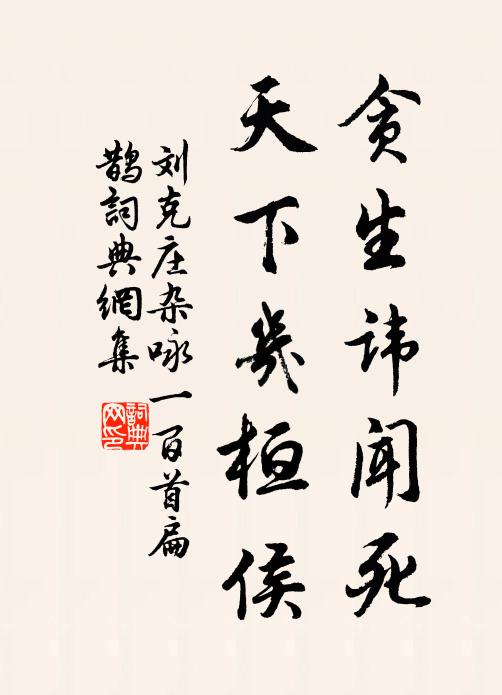 贪生讳闻死
天下几桓侯
刘克庄杂咏一百首扁
鹊詞典網集
詞典网印